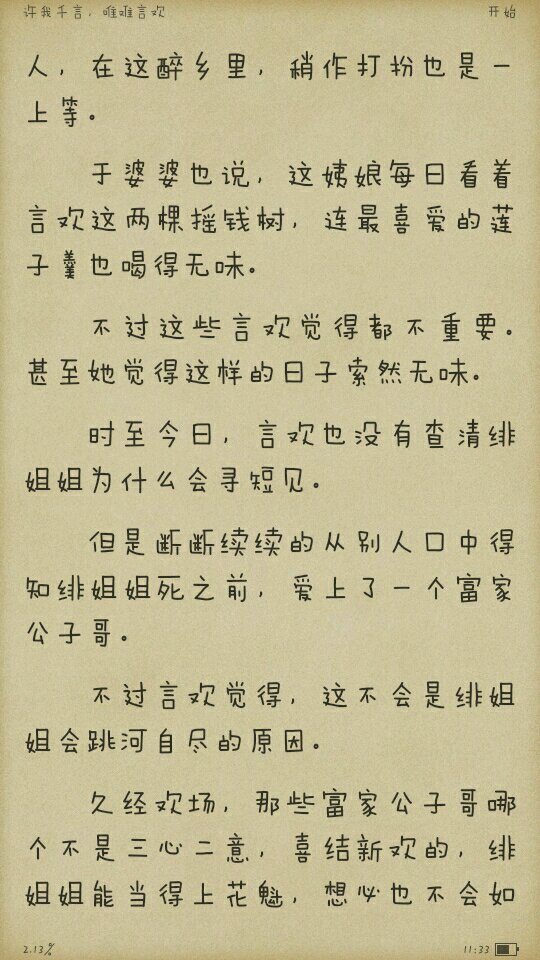 许我千言，唯难言欢
开始
人，在这醉乡里，稍作打扮也是一
上等。
于婆婆也说，这姨娘每日看着
言欢这两棵摇钱树，连最喜爱的莲
子羹也喝得无味。
不过这些言欢觉得都不重要。
甚至她觉得这样的日子索然无味。
时至今日，言欢也没有查清绯
姐姐为什么会寻短见。
但是断断续续的从别人口中得
知绯姐姐死之前，爱上了一个富家
公子哥。
不过言欢觉得，这不会是绯姐
姐会跳河自尽的原因。
久经欢场，那些富家公子哥哪
个不是三心二意，喜结新欢的，绯
姐姐能当得上花魁，想必也不会如
2.13%
11:33